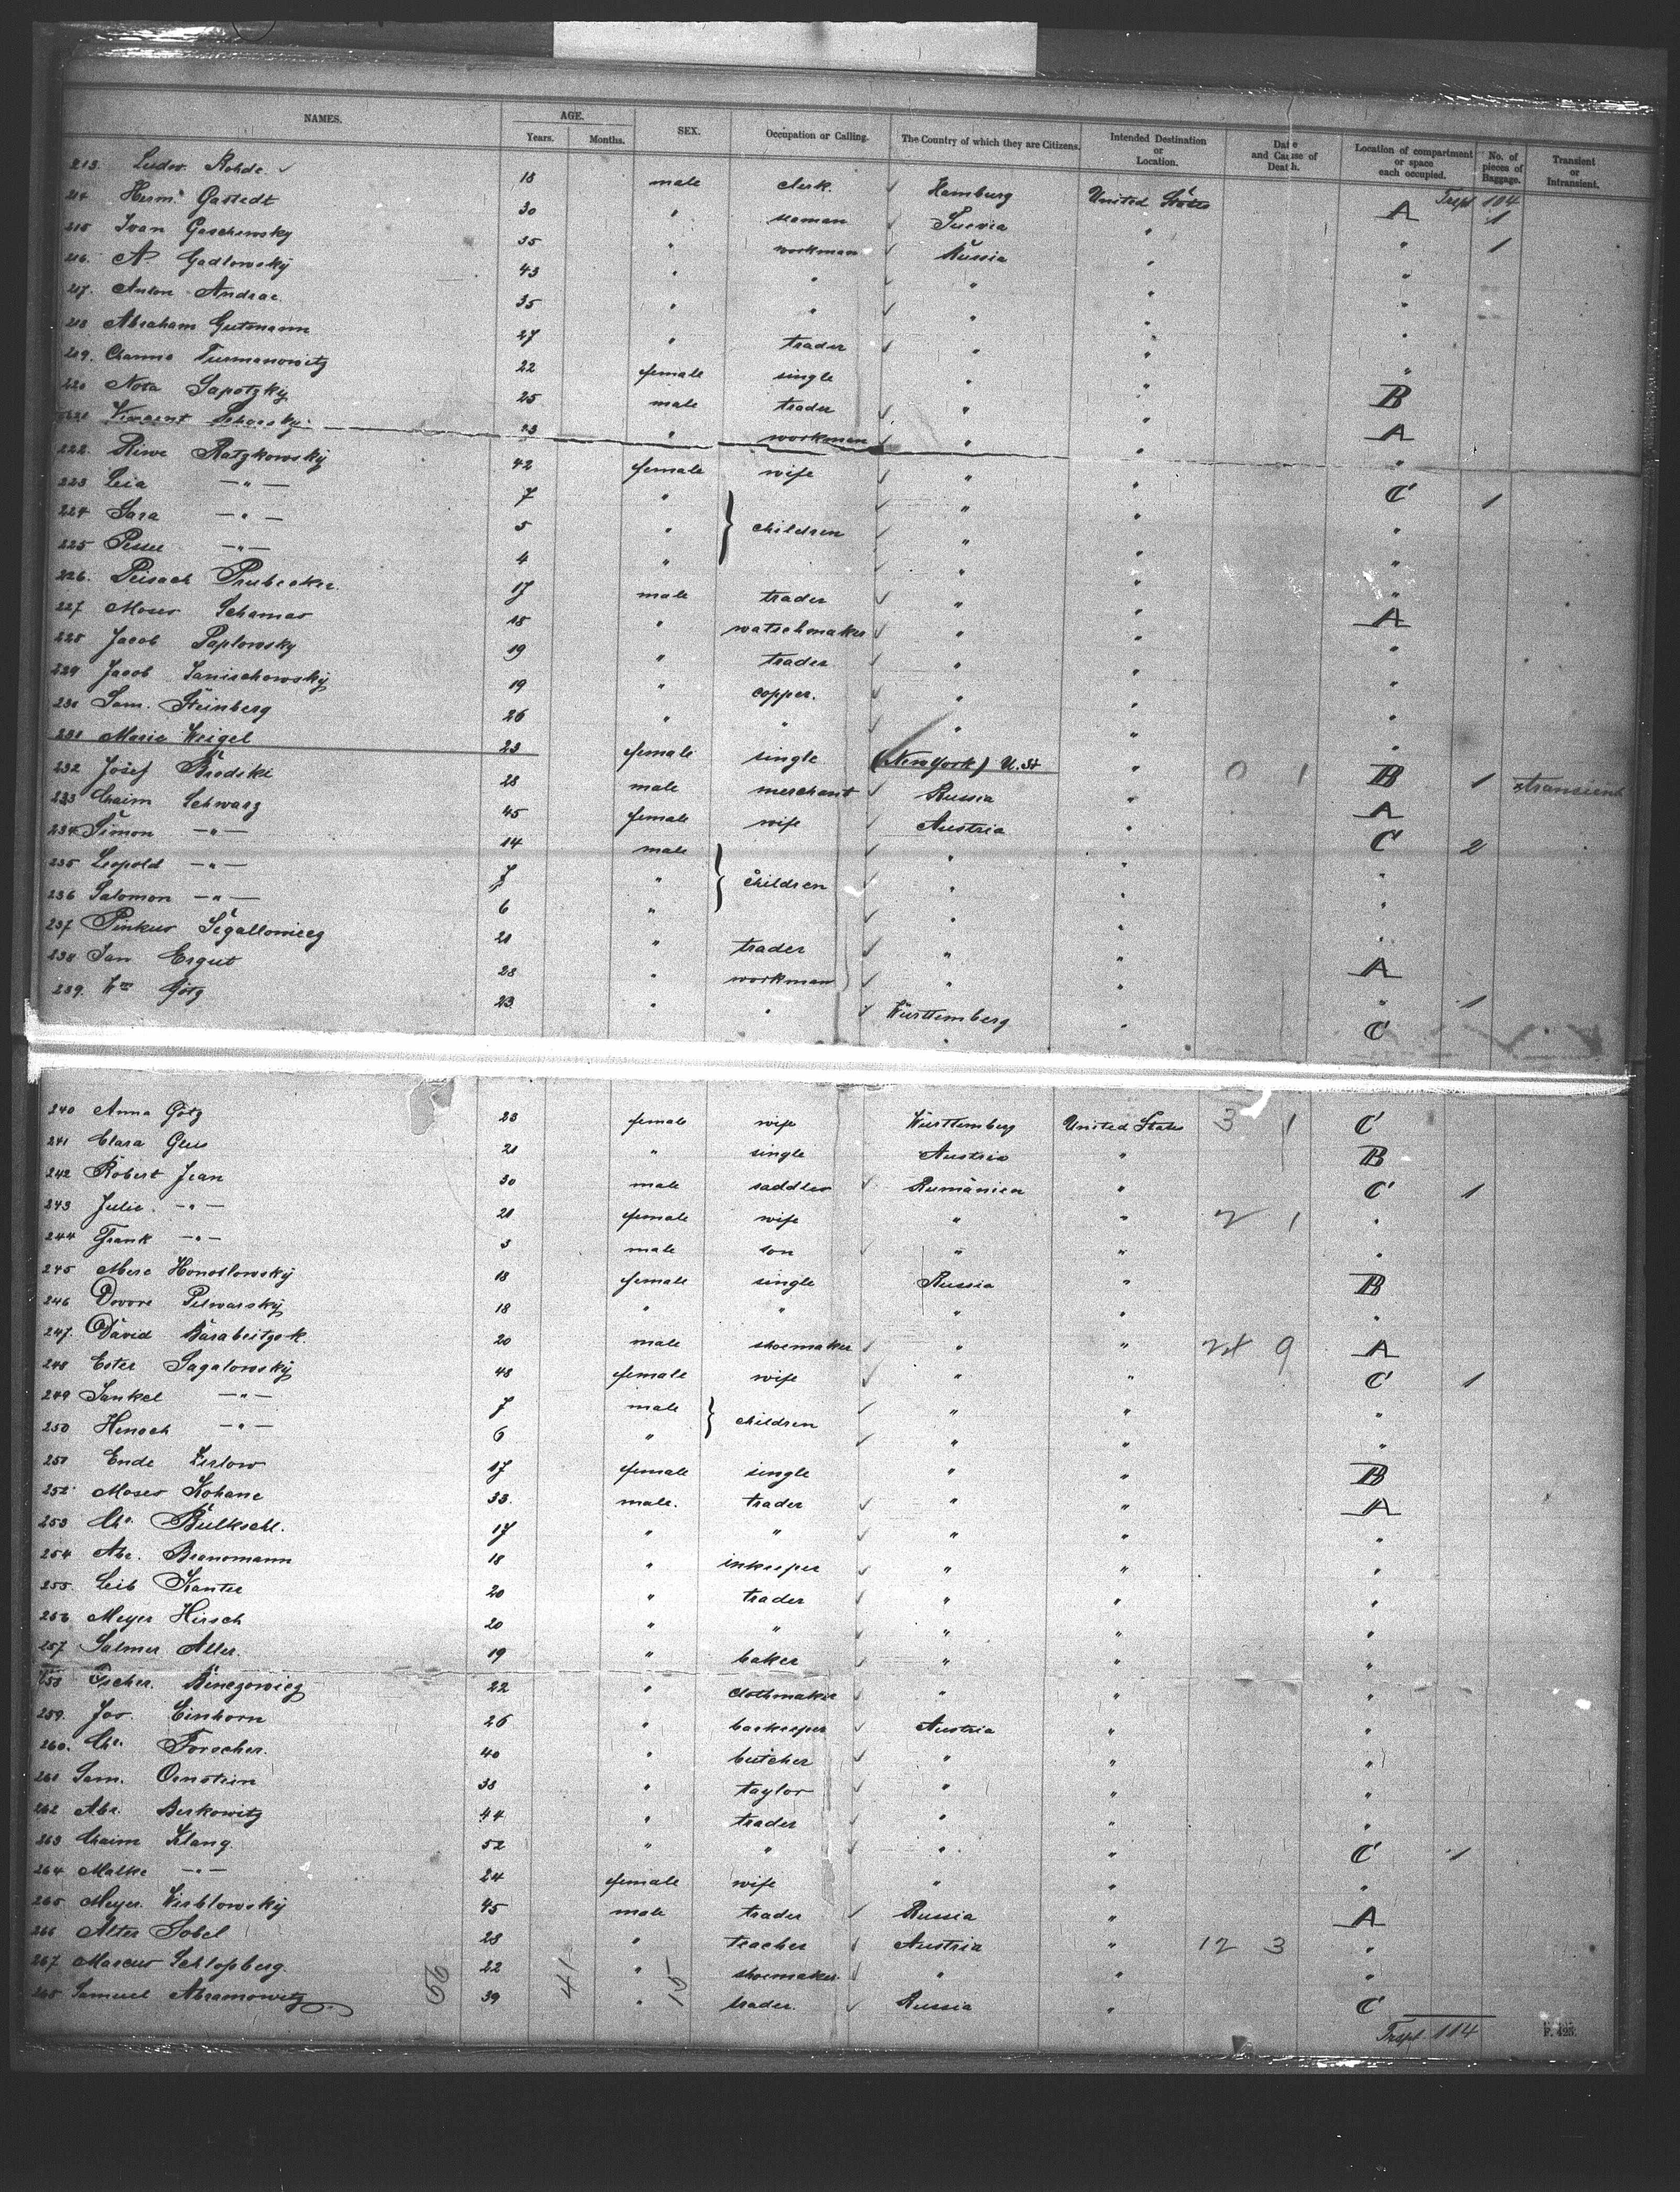 NAMES. AGE. SEX. Occupation or Calling. The Country of which they are Citizens. Intended Destination or Location. Date and Cause of Death. Location of compartment or space each occupied. No. of pieces of Baggage. Transient or Intransient.
Years. Months.
Trspt 104
213. Ludw. Rohde. 18 male clerk. Hamburg United States A 1
214 Herm. Gastedt 30 " seaman " " 1
215 Ivan Gaschewsky 35 " workman Russia " "
216. A. Gadlowsky 43 " " " " "
217. Anton Andrae 35 " " " " "
218 Abraham Gutmann 27 " trader " " "
219. Channe Turmanowitz 22 female single " " B
220 Nota Sapotzky 25 male trader " " A
221 Vincent 23 " workman " " "
222. Riwe Ratzkowsky 42 female wife " " C 1
223 Leia —"— 7 " children " " "
224 Sara —"— 5 " " " "
225 Pesse —"— 4 " " " "
226. Peisach Prubecker. 17 male trader " " A
227 Moses Schamas 18 " watschmaker " " "
228 Jacob Paplowsky 19 " trader " " "
229 Jacob Janischowsky 19 " copper. " " "
230 Sam. Steinberg 26 " " " " "
231 Marie Weigel 23 female single (New York) U. St " 0 1 B 1 transient
232 Josef Brodski 28 male merchant Russia " A
233 Chaim Schwarz 45 female wife Austria " C 2
234 Simon —"— 14 male children " " "
235 Leopold —"— 7 " " " "
236 Salomon —"— 6 " " " "
237 Pinkus Segallowicz 21 " trader " " A
238 Jan Ergut 28 " workman " " " 1
239. Wm Götz 23 " " Württemberg " C
240 Anna Götz 23 female wife Württemberg United States 3 1 C
241 Clara Glus 21 " single Austria " B
242 Robert Jean 30 male saddler Rumänien " C 1
243 Julie. —"— 21 female wife " " 2 1 "
244 Frank —"— 3 male son " " "
245 Mere Honoslowsky 18 female single Russia " B
246 Dovore Pilwarsky 18 " " " " "
247. David Barabeitzok. 20 male shoemaker " " 24 9 A
248 Ester Sagalowsky 48 female wife " " C 1
249 Jankel —"— 7 male children " " "
250 Henoch —"— 6 " " " "
251 Ende Zirlow 17 female single " " B
252 Moses Kohane 33. male. trader " " A
253 Ch. Bulkschl. 17 " " " " "
254 Abr. Branomann 18 " inkeeper " " "
255. Leib Kanter 20 " trader " " "
256 Meyer Hirsch 20 " " " " "
257 Salmer Aller. 19 " baker " " "
258 Ischer. Binezowicz 22 " clothmaker " " "
259. Jos. Einhorn 26 " barkeeper Austria " "
260. Ch. Forscher. 40 " butcher " " "
261 Sam. Ornstein 38 " taylor " " "
262 Abr. Berkowitz 44 " trader " " "
263 Chaim Klang 52 " " " " C 1
264 Malke —"— 24 female wife " " "
265 Meyer. Wirblowsky 45 male trader Russia " A
266 Alter Sobel 28 " teacher Austria " 12 3 "
267 Marcus Schlopberg. 22 " shoemaker. " " "
268 Samuel Abramowitz 39 " trader. Russia " C
56 41 15
Trspt 114
F. 425.